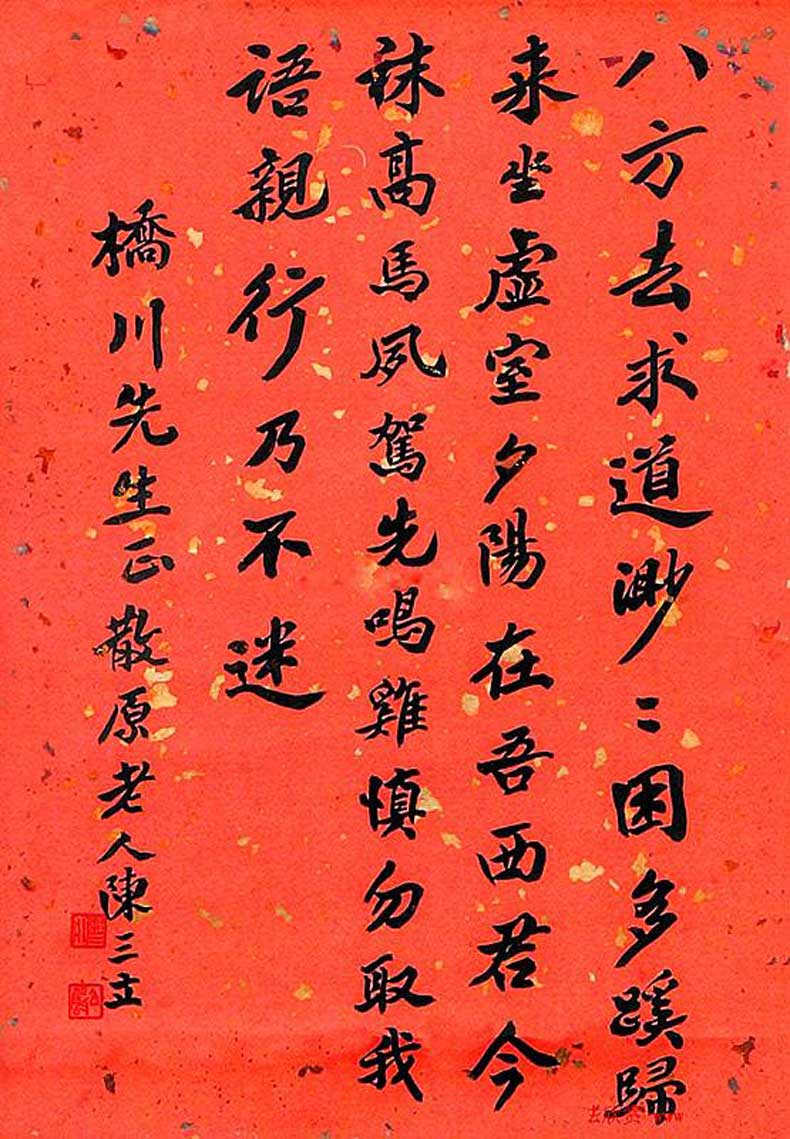 八方去求道渺〻困多蹊歸
来坐虛室夕陽在吾西君今
秣高馬夙駕先鳴雞慎勿取我
語親行乃不迷
橋川先生正散原老人陳三立